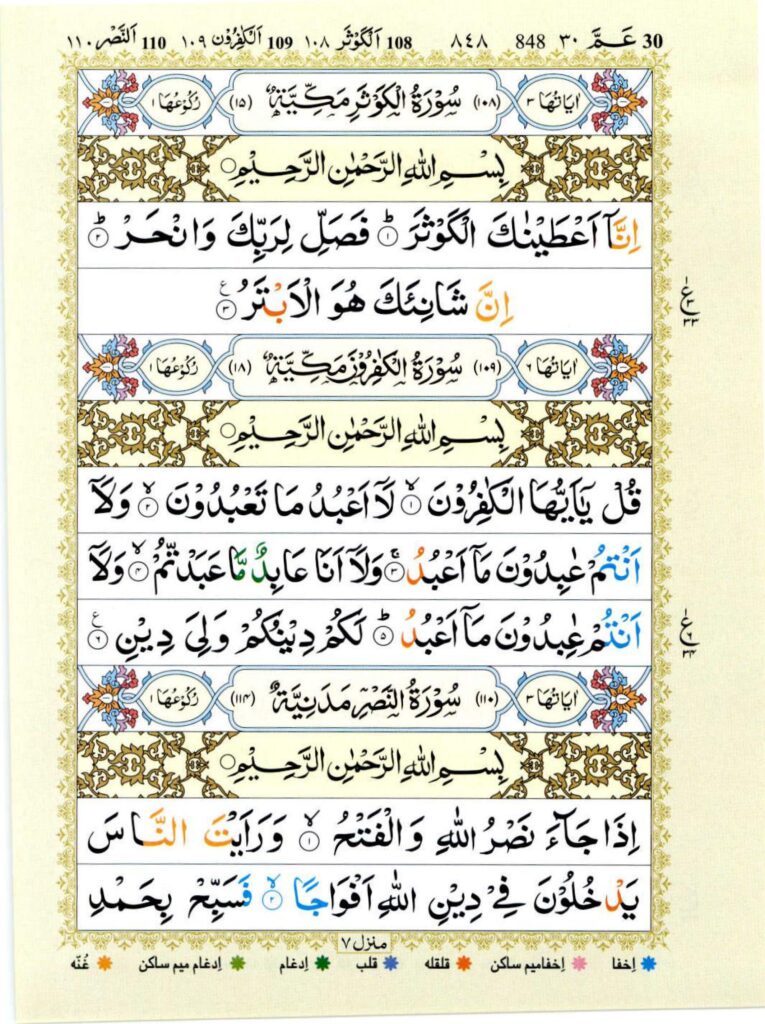 30 عَمَّ ٣٠ 848 ٨٤٨ 108 اَلْكَوْثَر ١٠٨ 109 اَلْكٰفِرُوْن ١٠٩ 110 اَلنَّصْر ١١٠
اٰيَاتُهَا ٣ (١٠٨) سُوْرَةُ الْكَوْثَرِ مَكِّيَّةٌ (١٥) رُكُوْعُهَا ١
بِسْمِ اللّٰهِ الرَّحْمٰنِ الرَّحِيْمِ
اِنَّاۤ اَعْطَيْنٰكَ الْكَوْثَرَ ؕ ١ فَصَلِّ لِرَبِّكَ وَانْحَرْ ؕ ٢
اِنَّ شَانِئَكَ هُوَ الْاَبْتَرُ ٣ ع
ع ٣ ٣٣
اٰيَاتُهَا ٦ (١٠٩) سُوْرَةُ الْكٰفِرُوْنَ مَكِّيَّةٌ (١٨) رُكُوْعُهَا ١
بِسْمِ اللّٰهِ الرَّحْمٰنِ الرَّحِيْمِ
قُلْ يٰۤاَيُّهَا الْكٰفِرُوْنَ ۙ ١ لَاۤ اَعْبُدُ مَا تَعْبُدُوْنَ ۙ ٢ وَلَاۤ
اَنْتُمْ عٰبِدُوْنَ مَاۤ اَعْبُدُ ۚ ٣ وَلَاۤ اَنَا عَابِدٌ مَّا عَبَدْتُّمْ ۙ ٤ وَلَاۤ
اَنْتُمْ عٰبِدُوْنَ مَاۤ اَعْبُدُ ؕ ٥ لَكُمْ دِيْنُكُمْ وَلِيَ دِيْنِ ٦ ع
ع ٦ ٣٤
اٰيَاتُهَا ٣ (١١٠) سُوْرَةُ النَّصْرِ مَدَنِيَّةٌ (١١٤) رُكُوْعُهَا ١
بِسْمِ اللّٰهِ الرَّحْمٰنِ الرَّحِيْمِ
اِذَا جَآءَ نَصْرُ اللّٰهِ وَالْفَتْحُ ۙ ١ وَرَاَيْتَ النَّاسَ
يَدْخُلُوْنَ فِيْ دِيْنِ اللّٰهِ اَفْوَاجًا ۙ ٢ فَسَبِّحْ بِحَمْدِ
منزل ٧
اِخفا اِخفامیم ساکن قلقله قلب اِدغام اِدغام میم ساکن غُنّه